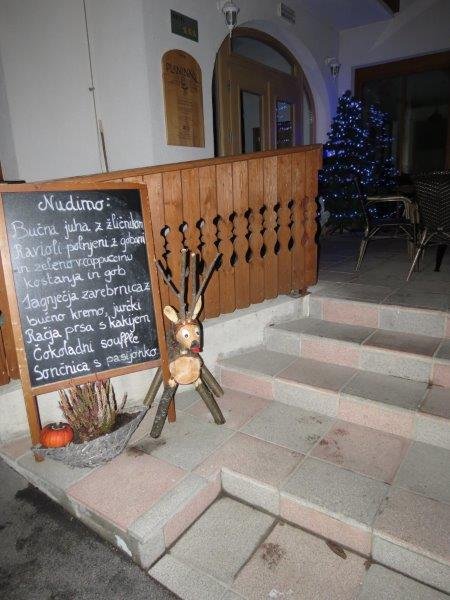 PLANINKA
Nudimo:
Bučna juha z žličnikom
Ravioli polnjeni z gobami
in zeleno v cappuccinu
kostanja in gob
Jagnječja zarebrnica z
bučno kremo, jurčki
Račja prsa s kakijem
Čokoladni souffle
Sončnica s pasijonko